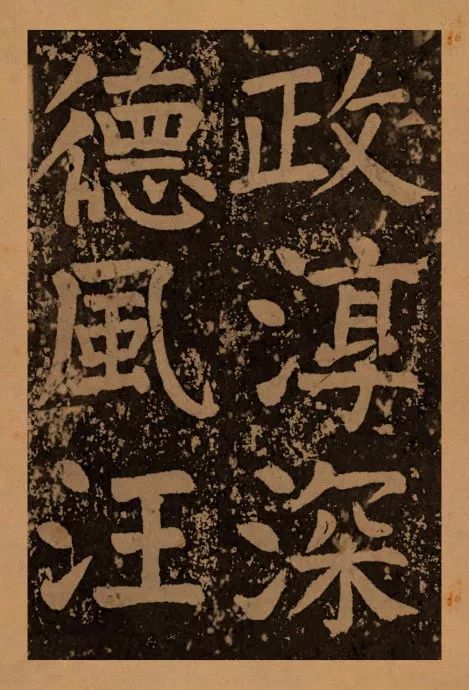 政淳深
德風汪